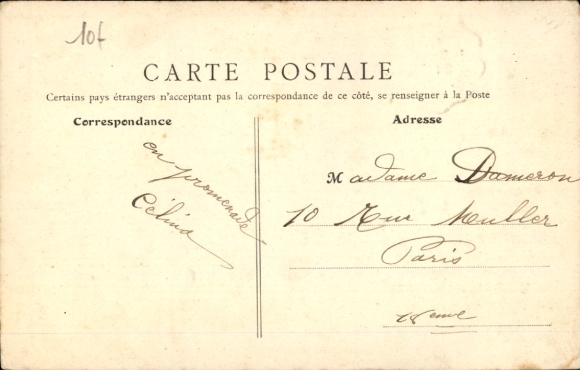 10f
CARTE POSTALE
Certains pays étrangers n'acceptant pas la correspondance de ce côté, se renseigner à la Poste
Correspondance
en promenade
Célina
Adresse
Madame Dameron
10 Rue Muller
Paris
18eme